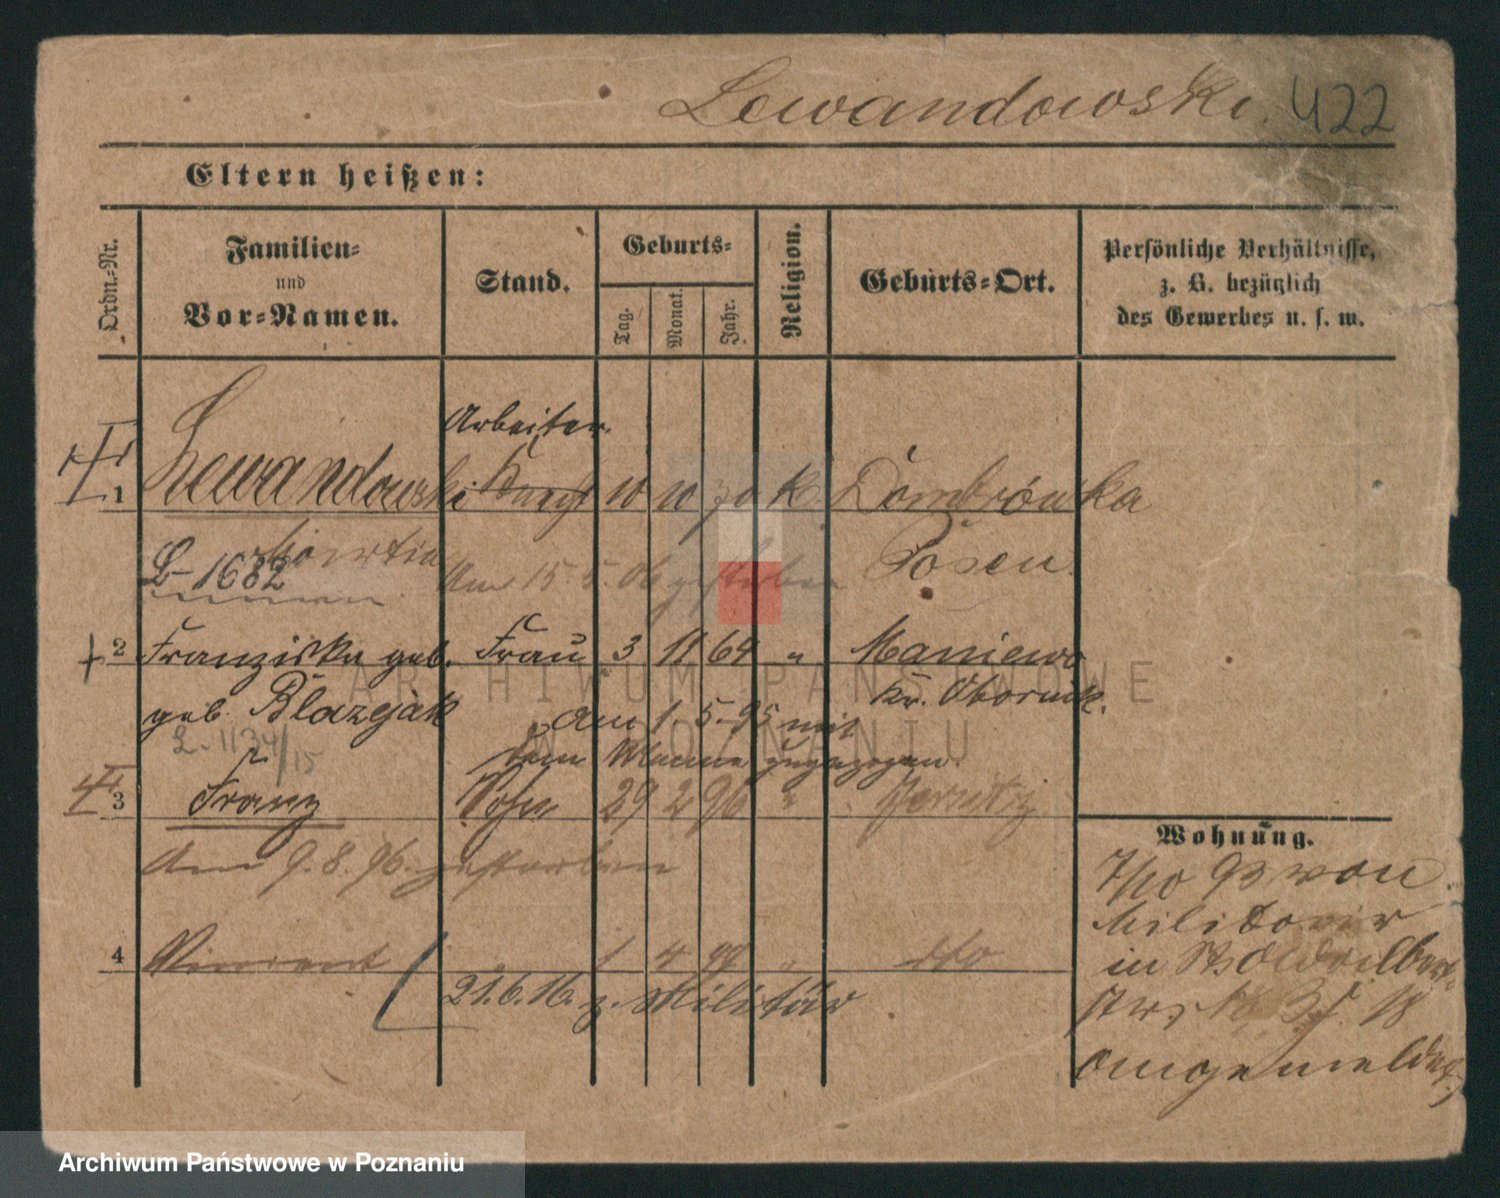 Lewandowski. 422
Eltern heißen:
Ordn.-Nr.
Familien-
und
Vor-Namen.
Stand.
Geburts-
Tag.
Monat.
Jahr.
Religion.
Geburts-Ort.
Persönliche Verhältnisse,
z. B. bezüglich
des Gewerbes u. s. w.
Arbeiter.
1 Lewandowski 10 10 70 K Dombrówka
Posen.
L-1682
Am 15. 5. 06 gestorben
2 Franziska geb. Frau 3 11 64 " Maniewo
Kr. Obornik.
geb. Błazejak
am 1. 5. 95 mit
L. 1134/15
dem Manne zugezogen.
3 Franz Sohn 29 2 96 " Jersitz
Am 9. 8. 96. gestorben
4 Vincent " 1 4 97 " dto
21.6.16. z. Militär
Wohnung.
7/10 93 von
Militair
in
18
angemeldet
ARCHIWUM PAŃSTWOWE
W POZNANIU
Archiwum Państwowe w Poznaniu